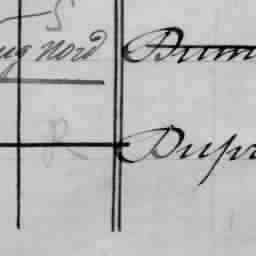 5
ug nord Dum
R Dupr